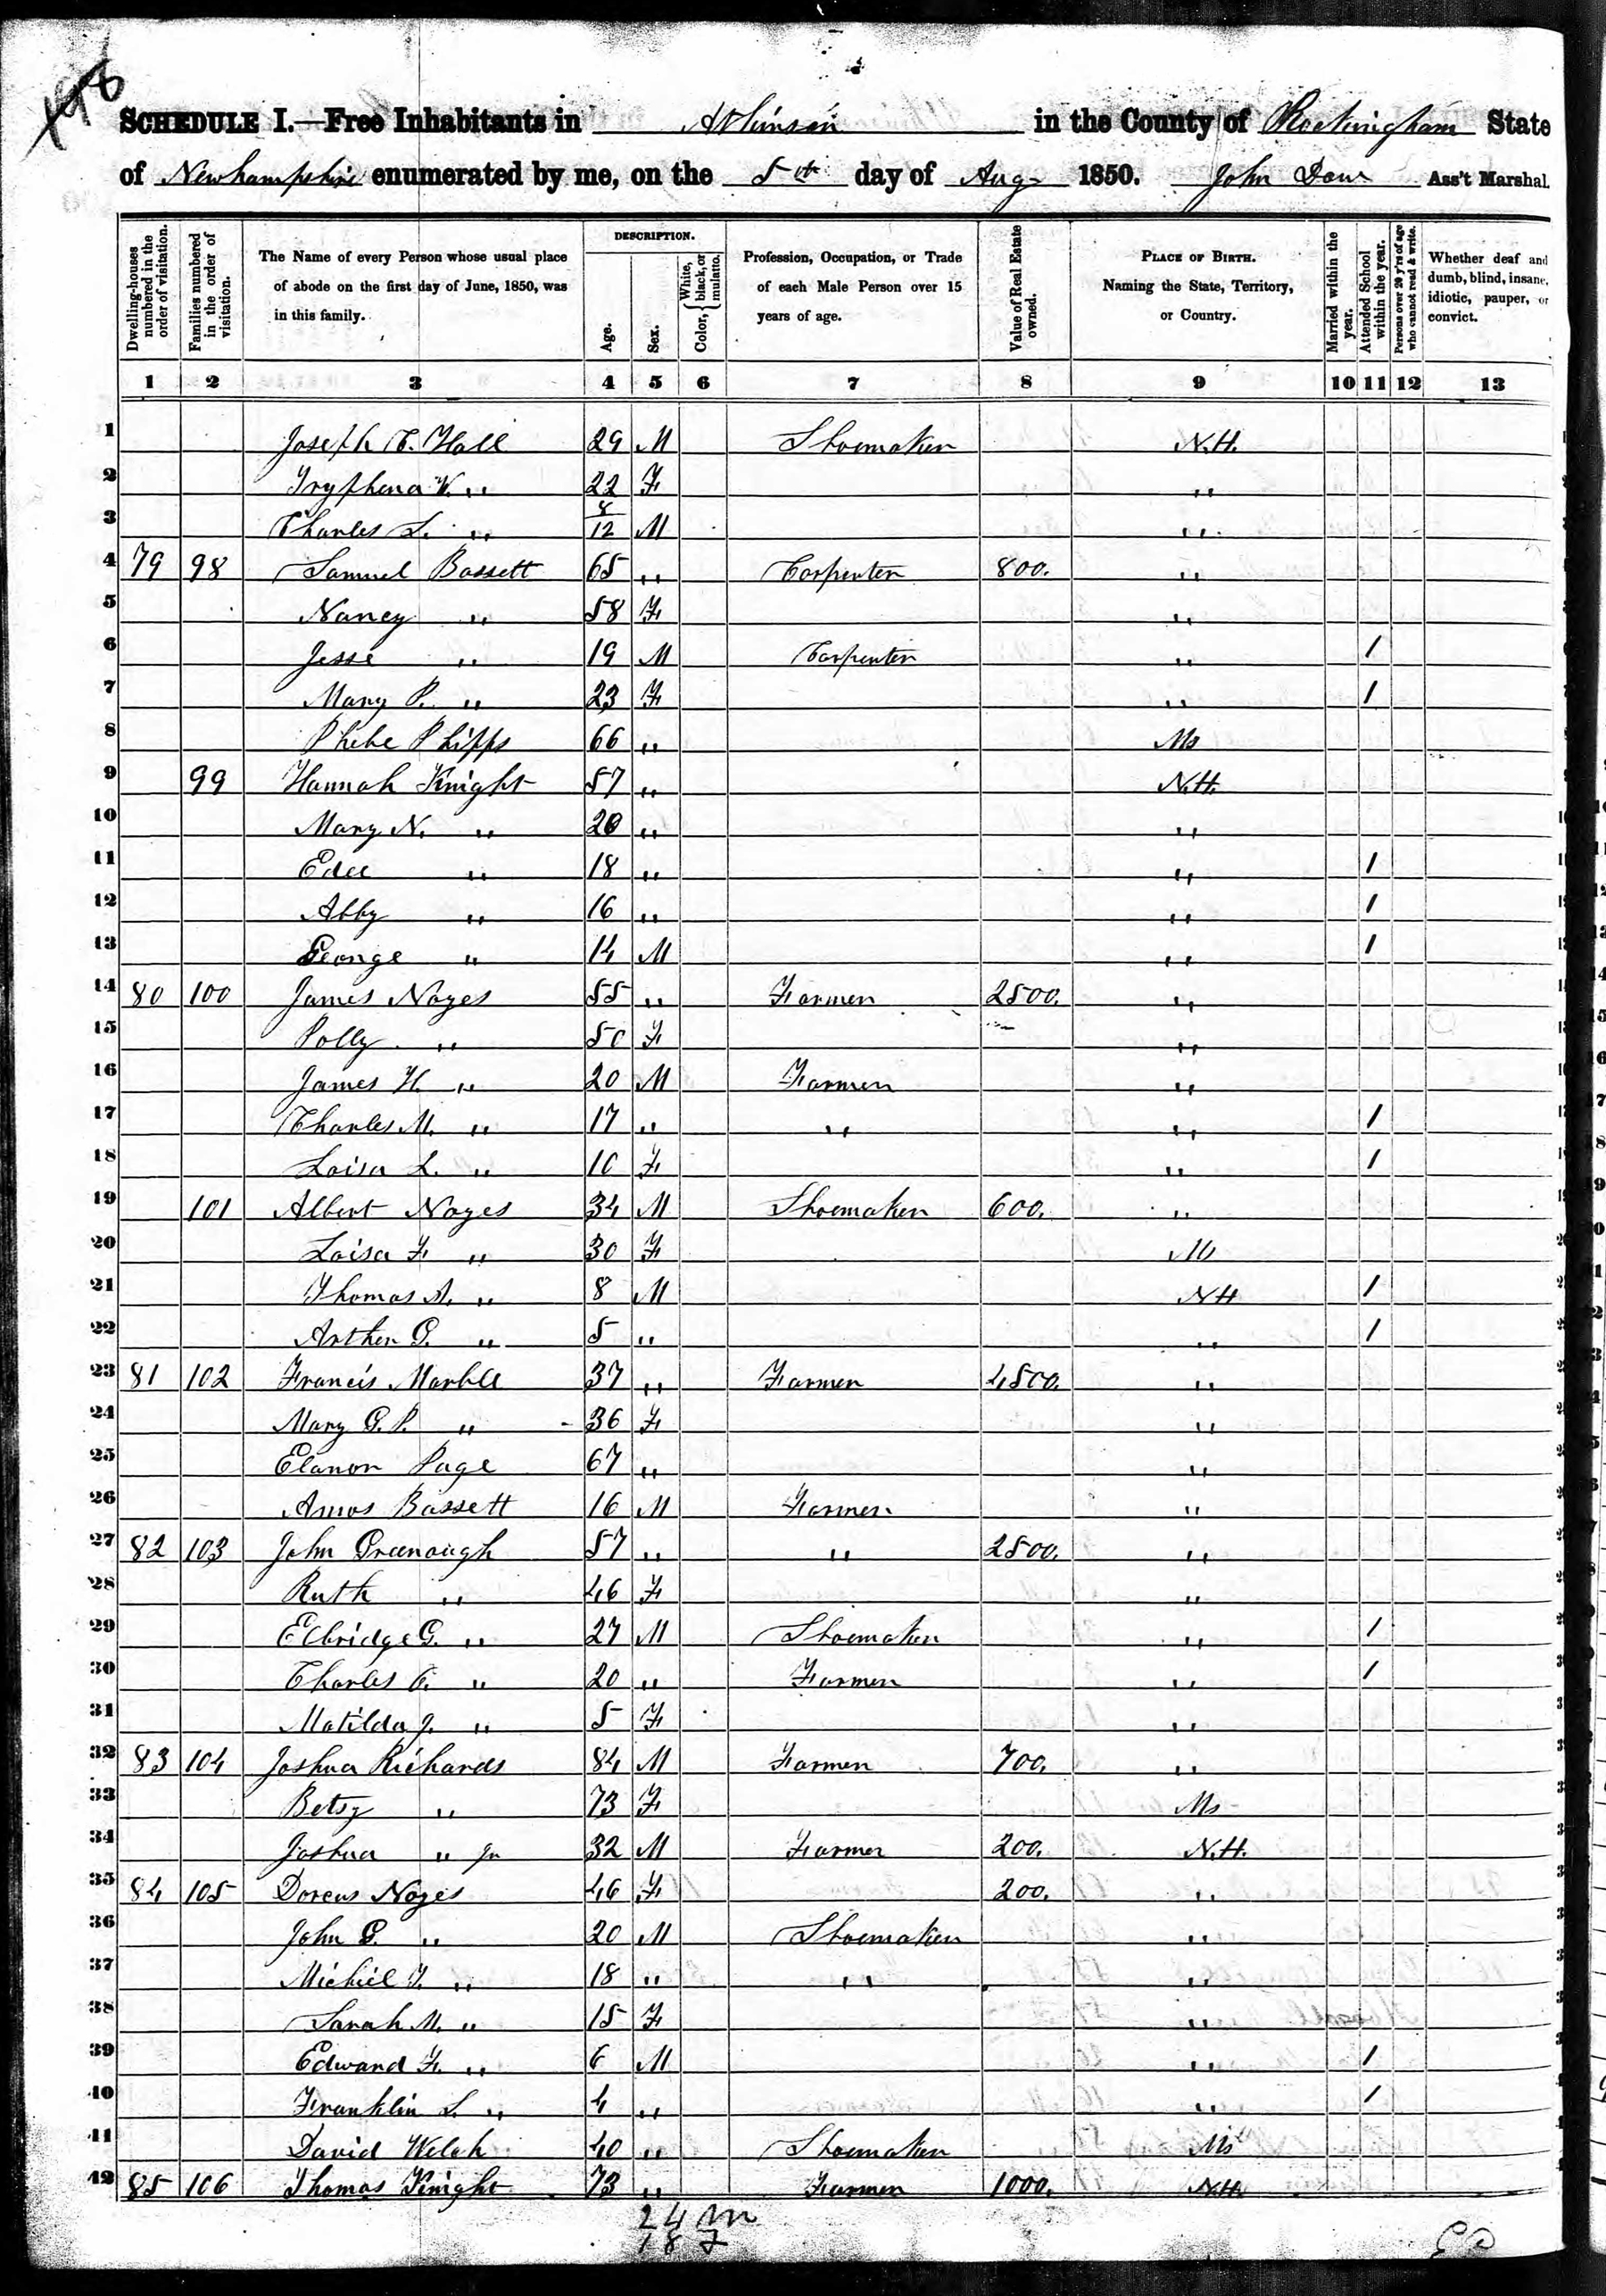 198
SCHEDULE I.—Free Inhabitants in Atkinson in the County of Rockingham State
of Newhampshire enumerated by me, on the 5th day of Aug 1850. John Dow Ass't Marshal.
Dwelling-houses numbered in the order of visitation.
Families numbered in the order of visitation.
The Name of every Person whose usual place of abode on the first day of June, 1850, was in this family.
DESCRIPTION.
Age.
Sex.
Color, { White, black, or mulatto.
Profession, Occupation, or Trade of each Male Person over 15 years of age.
Value of Real Estate owned.
PLACE OF BIRTH. Naming the State, Territory, or Country.
Married within the year.
Attended School within the year.
Persons over 20 y'rs of age who cannot read & write.
Whether deaf and dumb, blind, insane, idiotic, pauper, or convict.
1 2 3 4 5 6 7 8 9 10 11 12 13
1 Joseph T. Hall 29 M Shoemaker N.H.
2 Tryphena W. " 22 F "
3 Charles L. " 8/12 M "
4 79 98 Samuel Bassett 65 " Carpenter 800. "
5 Nancy " 58 F "
6 Jesse " 19 M Carpenter " 1
7 Mary P. " 23 F " 1
8 Phebe Phipps 66 " Ms
9 99 Hannah Knight 57 " N.H.
10 Mary N. " 20 " "
11 Edee " 18 " " 1
12 Abby " 16 " " 1
13 George " 14 M " 1
14 80 100 James Noyes 55 " Farmer 2500. "
15 Polly " 50 F "
16 James H. " 20 M Farmer "
17 Charles M. " 17 " " " 1
18 Loisa L. " 10 F " 1
19 101 Albert Noyes 34 M Shoemaker 600. "
20 Loisa F. " 30 F Ms
21 Thomas A. " 8 M NH 1
22 Arther G. " 5 " " 1
23 81 102 Francis Marble 37 " Farmer 4500. "
24 Mary G. P. " 36 F "
25 Elanor Page 67 " "
26 Amos Bassett 16 M Farmer "
27 82 103 John Greenough 57 " " 2500. "
28 Ruth " 46 F "
29 Elbridge G. " 27 M Shoemaker " 1
30 Charles " 20 " Farmer " 1
31 Matilda J. " 5 F "
32 83 104 Joshua Richards 84 M Farmer 700. "
33 Betsy " 73 F Ms
34 Joshua " Jr 32 M Farmer 200. N.H.
35 84 105 Dorcus Noyes 46 F 200. "
36 John G. " 20 M Shoemaker "
37 Michiel T. " 18 " " "
38 Sarah M. " 15 F "
39 Edward F. " 6 M " 1
40 Franklin S. " 4 " " 1
41 David Welch 40 " Shoemaker Ms
42 85 106 Thomas Knight 73 " Farmer 1000. N.H.
24 m
18 F